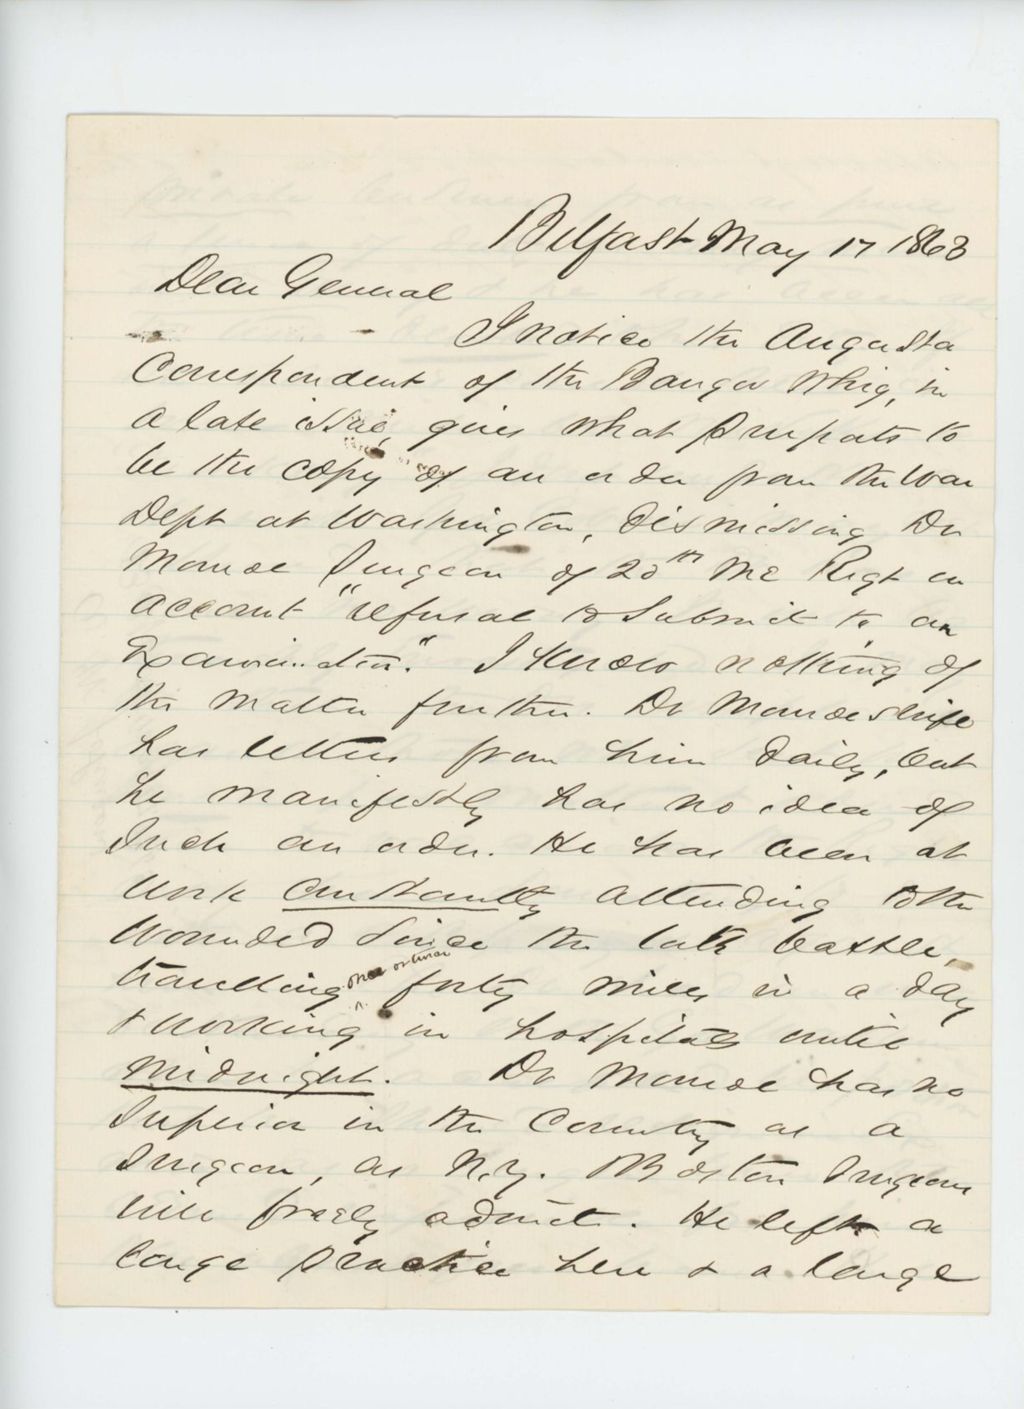 Belfast May 17 1863
Dear General
I notice the Augusta
Correspondent of the Bangor Whig, in
a late issue, gives what purports to
be the copy of an order from the War
Dept at Washington, dismissing Dr
Monroe Surgeon of 20th Me Regt on
account "refusal to submit to an
Examination." I know nothing of
the matter further. Dr Monroes wife
has letters from him daily, but
he manifestly has no idea of
such an order. He has been at
work constantly attending to the
wounded since the late battle,
travelling once or twice forty miles in a day
& working in hospitals until
midnight. Dr Monroe has no
superior in the County as a
Surgeon, as N.Y. Boston Surgeons
will freely admit. He left a
large practice here & a large